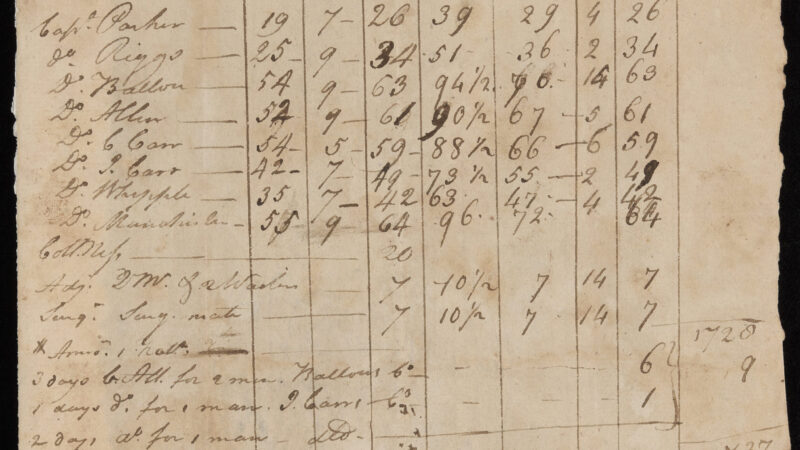 Capt. Parker — 19 7 – 26 39 29 4 26
do Riggs — 25 – 9 – 34 – 51 – 36 – 2 34
Do. Ballou — 54 9 – 63 94 1/2 – 15 63
Do. Allen — 52 9 – 61 90 1/2 67 – 5 61
Do. C Carr — 54 – 5 – 59 – 88 1/2 66 – 6 59
Do. J. Carr — 42 – 7 – 49 – 73 1/2 55 – 2 49
Do. Whipple — 35 7 – 42 63 47 – 4 42
Do. Manchester – 55 9 – 64 96 72 – 64
— 20
Adj. 7 10 1/2 7 14 7
Surgn. Surg. mate — 7 10 1/2 7 14 7
1728
1
3 days All. for 2 men. Ballous Co — 6 9
1 days do. for 1 man. J. Carrs – Co 1
2 days do. for 1 man – do –